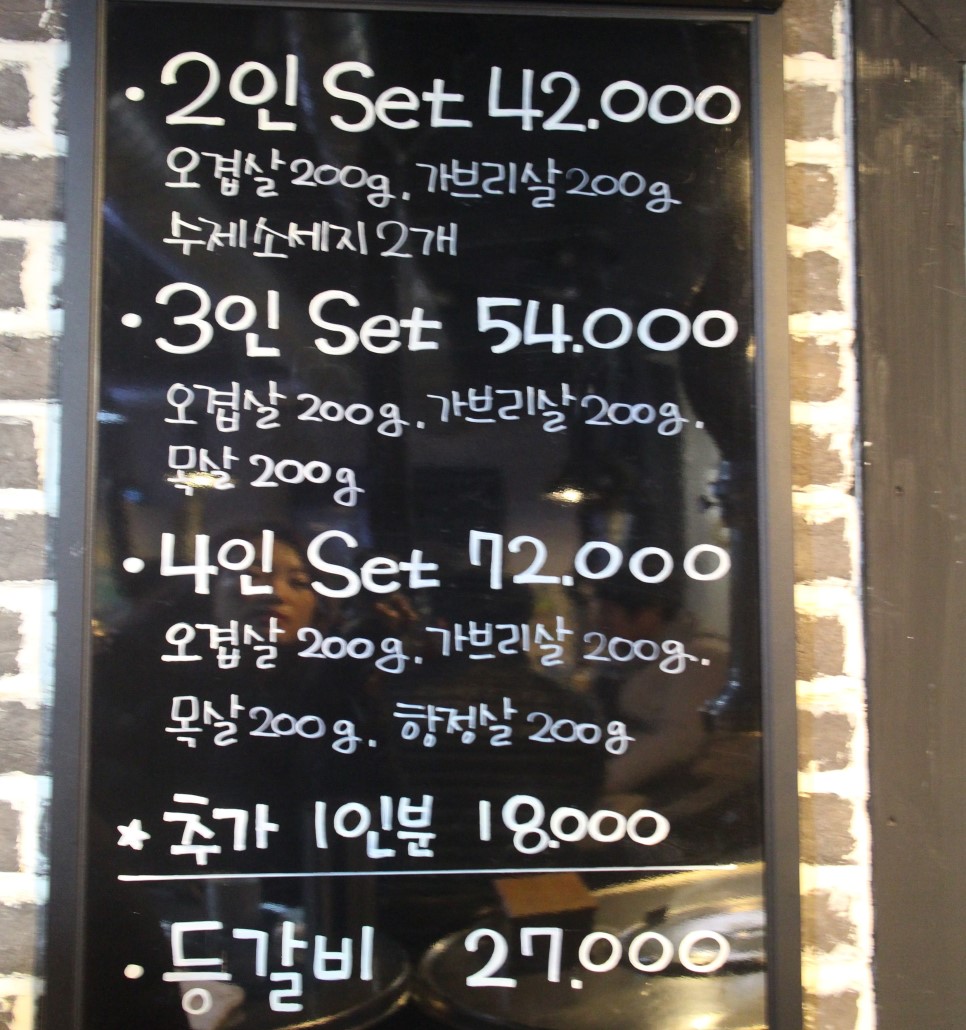 · 2인 Set 42.000
오겹살 200g. 가브리살 200g
수제소세지 2개
· 3인 Set 54.000
오겹살 200g. 가브리살 200g.
목살 200g
· 4인 Set 72.000
오겹살 200g. 가브리살 200g.
목살 200g. 항정살 200g
☆ 추가 1인분 18.000
· 등갈비 27.000